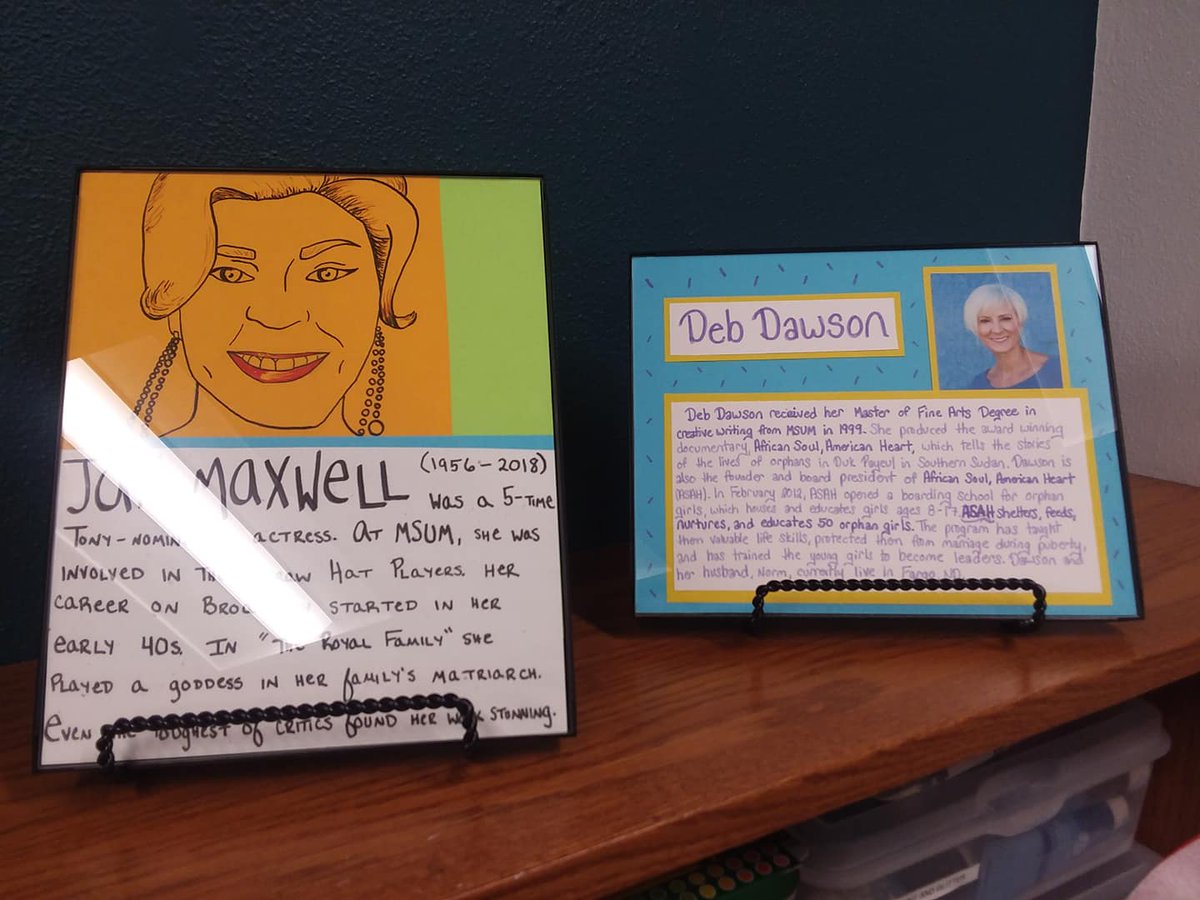 MAXWELL (1956-2018)
WAS A 5-TIME
TONY-NOMIN ACTRESS. AT MSUM, SHE WAS
INVOLVED IN HAT PLAYERS. HER
CAREER ON STARTED IN HER
EARLY 40S. IN "THE ROYAL FAMILY" SHE
PLAYED A GODDESS IN HER FAMILY'S MATRIARCH.
EVEN TOUGHEST OF CRITICS FOUND HER WORK STUNNING.
Deb Dawson
Deb Dawson received her Master of Fine Arts Degree in
creative writing from MSUM in 1999. She produced the award winning
documentary, African Soul, American Heart, which tells the stories
of the lives of orphans in Duk Payeul in Southern Sudan. Dawson is
also the founder and board president of African Soul, American Heart
(ASAH). In February 2012, ASAH opened a boarding school for orphan
girls, which houses and educates girls ages 8-17. ASAH shelters, feeds,
nurtures, and educates 50 orphan girls. The program has taught
them valuable life skills, protected them from marriage during puberty,
and has trained the young girls to become leaders. Dawson and
her husband, Norm, currently live in Fargo ND.
AND GLITTER